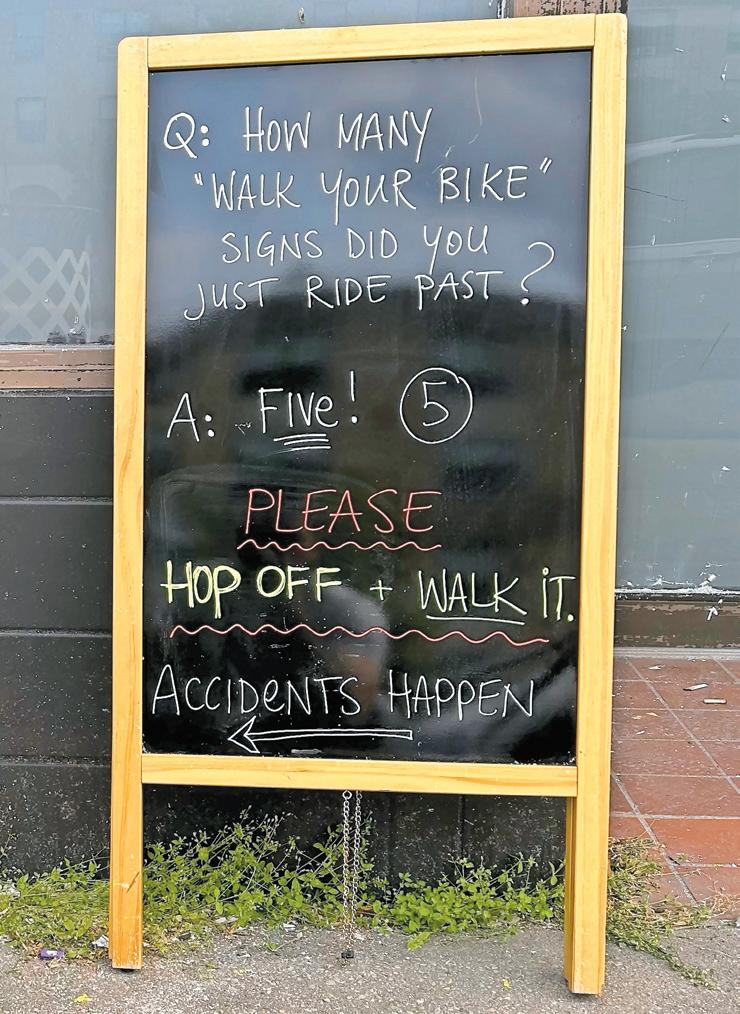 Q: HOW MANY
"WALK YOUR BIKE"
SIGNS DID YOU
JUST RIDE PAST?
A: FIVe! 5
PLEASE
HOP OFF + WALK iT.
ACCIDeNTS HAPPEN